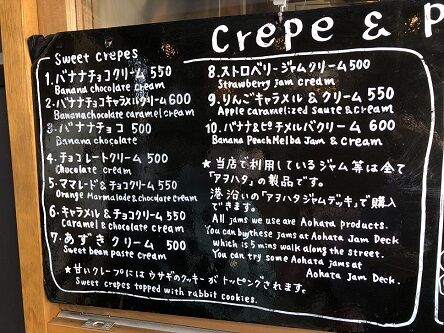 Crepe & P
Sweet Crepes
1. バナナチョコクリーム 550
Banana chocolate cream
2. バナナチョコキャラメルクリーム 600
Banana chocolate caramel cream
3. バナナチョコ 500
Banana chocolate
4. チョコレートクリーム 500
Chocolate cream
5. ママレード&チョコクリーム 550
Orange Marmalade & chocolate cream
6. キャラメル&チョコクリーム 550
Caramel & chocolate cream
7. あずきクリーム 500
Sweet bean paste cream
★甘いクレープにはウサギのクッキーがトッピングされます。
Sweet crepes topped with rabbit cookies.
8. ストロベリージャムクリーム 500
Strawberry jam cream
9. りんごキャラメル&クリーム 550
Apple caramelized saute & cream
10. バナナ&ピーチメルバクリーム 600
Banana Peach Melba Jam & Cream
★当店で利用しているジャム等は全て
「アヲハタ」の製品です。
港沿いの「アヲハタジャムデッキ」で購入
できます。
All jams we use are Aohata products.
You can buy these jams at Aohata Jam Deck
which is 5 mins walk along the street.
You can try some Aohata jams at
Aohata Jam Deck.